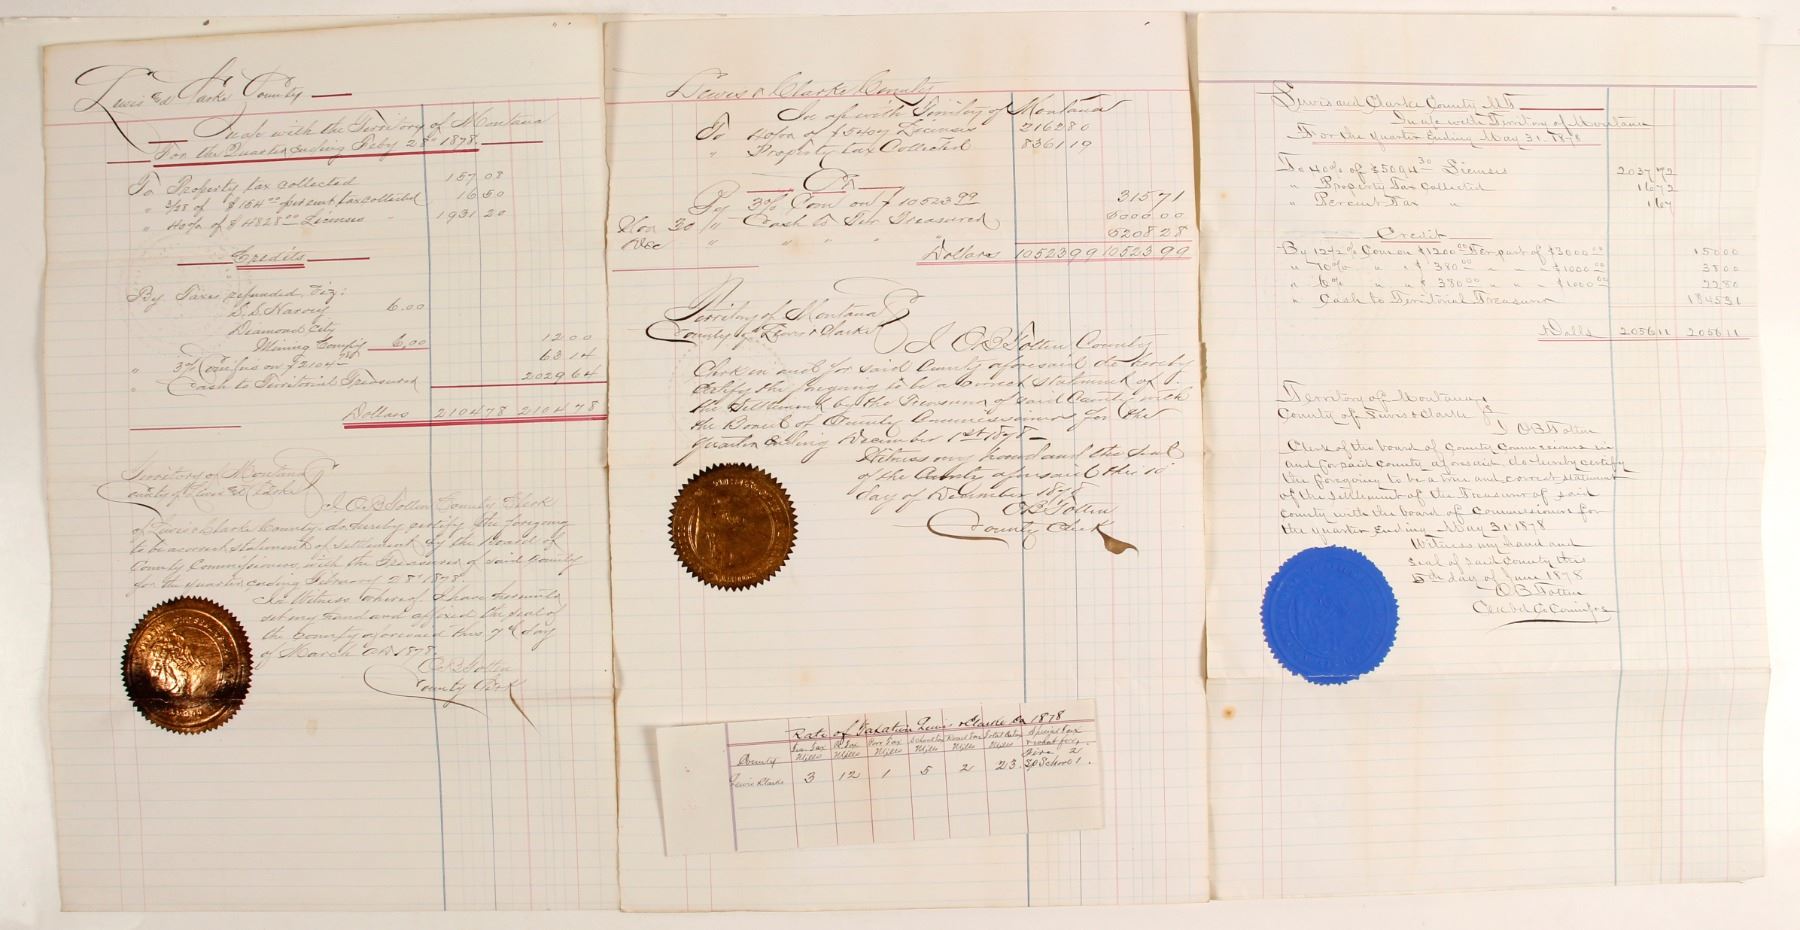 Lewis & Clarke County
In a/c with the Territory of Montana
For the Quarter ending Feby 28th 1878.
To Property tax collected 157 08
" 3/28 of $154 00 per cent tax collected 16 50
" 40% of $4828 00 Licenses " 1931 20
Credits
By Taxes refunded, viz:
S. S. Harvey 6.00
Diamond City
Mining Comp'y 6,00 12 00
" 3% Com on $2104 78 63 14
" Cash to Territorial Treasured 2029 64
Dollars 2104 78 2104 78
Territory of Montana
County of Lewis & Clarke
I O B Totten County Clerk
of Lewis & Clarke County do hereby certify the foregoing
to be a correct statement of settlement by the Board of
County Commissioners, with the Treasurer of said County
for the quarter ending February 28th 1878.
In Witness whereof I have hereunto
set my hand and affixed the seal of
the County aforesaid this 7th day
of March AD 1878.
O B Totten
County Clerk
Lewis & Clarke County
In a/c with Territory of Montana
To 40% of $5407 Licenses 2162 80
" Property tax Collected 8361 19
Cr
By 3% Com on $10523 99 315.71
Nov 30 " Cash to Ter Treasured 5000.00
Dec " " " " " 5208 28
Dollars 10523 99 10523 99
Territory of Montana
County of Lewis & Clarke
I O B Totten County
Clerk in and for said County aforesaid do hereby
certify the foregoing to be a correct statement of
the Settlement by the Treasurer of said County with
the Board of County Commissioners for the
quarter ending December 1st 1878
Witness my hand and the seal
of the County aforesaid this 10
day of December 1878
O B Totten
County Clerk
Rate of Taxation Lewis & Clarke Co 1878
County Mills Mills Poor Tax Mills School Tax Mills Road Tax Mills Total Mills Special Tax & what for
Fire 2
Lewis & Clarke 3 12 1 5 2 23. Sp School 1.
Lewis and Clarke County M.T.
In a/c with Territory of Montana
For the quarter ending May 31. 1878
To 40% of $5094 30 Licenses 2037 72
" Property Tax Collected 16 72
" Percent Tax " 1 67
Credit
By 12 1/2 % Com on $1200 00 Ter part of $3000 00 150 00
" 10% " " $380 00 " " " $1000 00 38 00
" 6% " " $380 00 " " " $1000 00 22 80
" Cash to Territorial Treasurer 1845 31
Dolls 2056 11 2056 11
Territory of Montana
County of Lewis & Clarke
I O B Totten
Clerk of the board of County Commissioners in
and for said County aforesaid, do hereby certify
the foregoing to be a true and correct statement
of the settlement of the Treasurer of said
County with the board of Commissioners for
the quarter ending May 31 1878
Witness my hand and
seal of said County this
5th day of June 1878
O B Totten
Clk bd Co Comm'rs